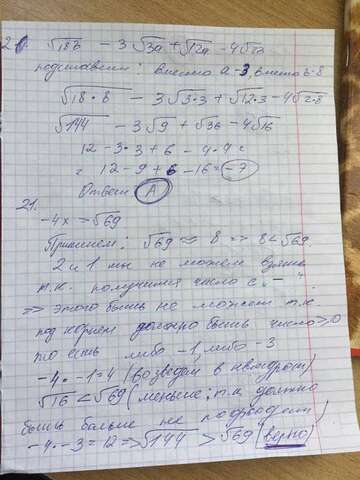 21. √18b - 3√3a + √12a - 4√2b
подставим: вместо a-3, вместо b-8
√18·8 - 3√3·3 + √12·3 - 4√2·8
√144 - 3√9 + √36 - 4√16
12 - 3·3 + 6 - 4·4 =
= 12 - 9 + 6 - 16 = -7
Ответ: А
21.
-4x = √69
Примем: √69 ≈ 8 => 8<√69.
2 и 1 мы не можем взять
т.к. получится число с „-".
=> этого быть не может т.к
под корнем должно быть число >0
то есть либо -1, либо -3
-4·-1=4 (возведем в квадрат)
√16 < √69 (меньше, т.к. должно
быть больше не подходит)
-4·-3=12=> √144 > √69 (верно)